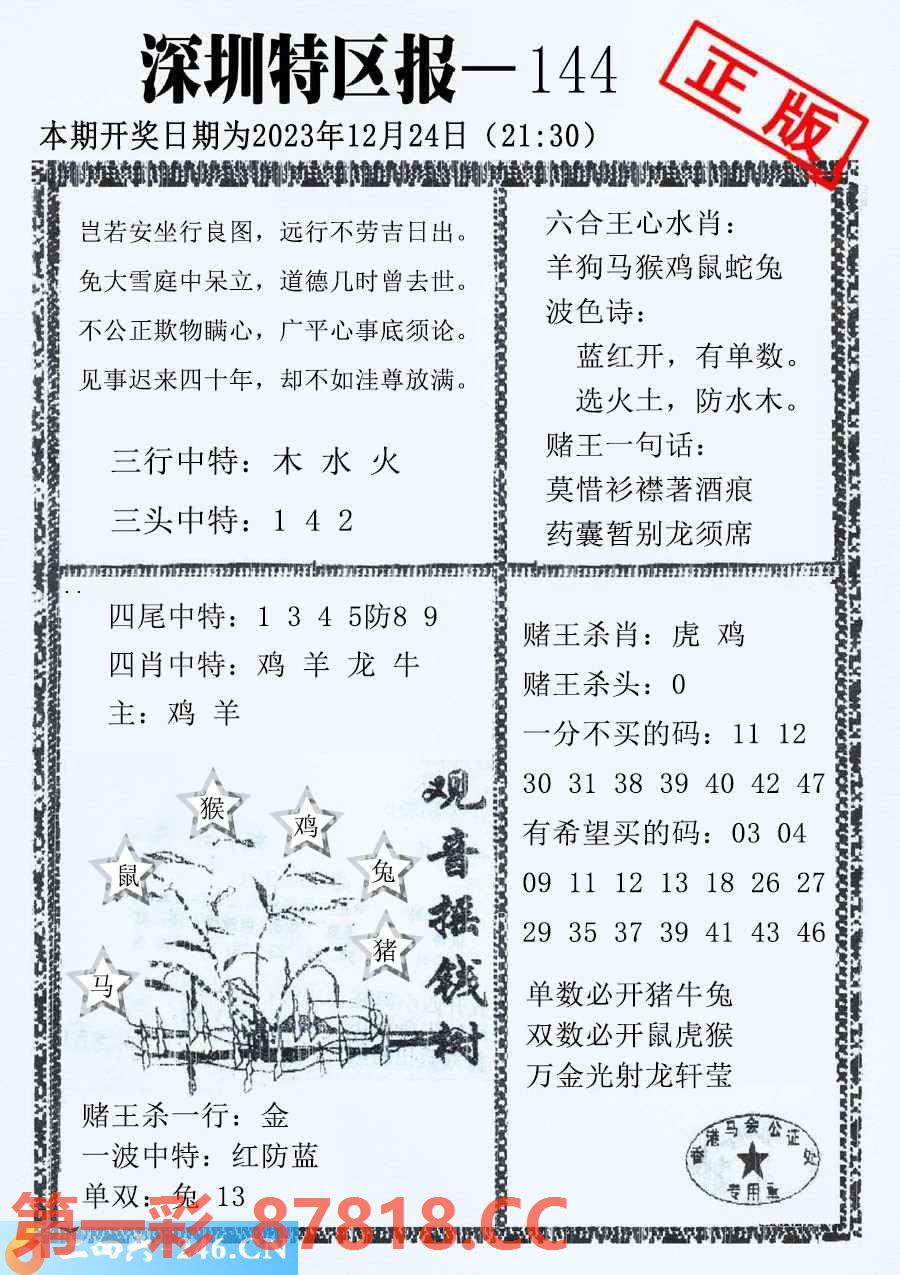 深圳特区报—144
正版
本期开奖日期为2023年12月24日（21:30）
岂若安坐行良图，远行不劳吉日出。
免大雪庭中呆立，道德几时曾去世。
不公正欺物瞒心，广平心事底须论。
见事迟来四十年，却不如洼尊放满。
三行中特：木 水 火
三头中特：1 4 2
六合王心水肖：
羊狗马猴鸡鼠蛇兔
波色诗：
蓝红开，有单数。
选火土，防水木。
赌王一句话：
莫惜衫襟著酒痕
药囊暂别龙须席
四尾中特：1 3 4 5防8 9
四肖中特：鸡 羊 龙 牛
主：鸡 羊
观音摇钱树
猴
鸡
鼠
兔
猪
马
赌王杀一行：金
一波中特：红防蓝
单双：兔 13
赌王杀肖：虎 鸡
赌王杀头：0
一分不买的码：11 12
30 31 38 39 40 42 47
有希望买的码：03 04
09 11 12 13 18 26 27
29 35 37 39 41 43 46
单数必开猪牛兔
双数必开鼠虎猴
万金光射龙轩莹
香港马会公证处
专用章
第一彩 87818.CC
246.CN